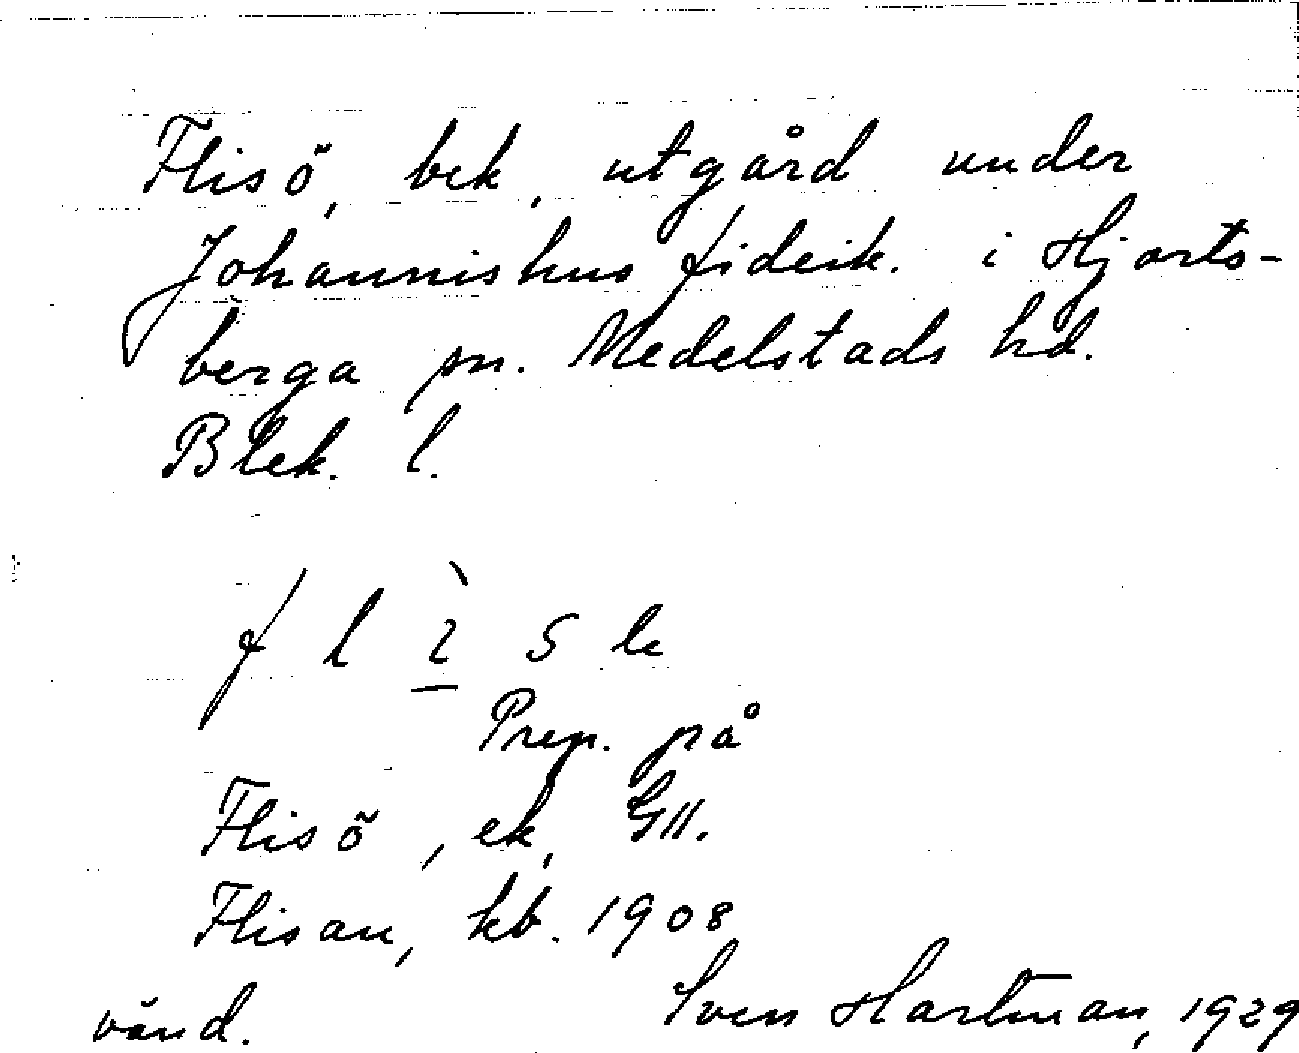 Flisö, bek, utgård under
Johannishus fideik. i Hjorts-
berga sn. Medelstads hd.
Blek. l.
f l ì s
Prep. på
Flisö, ek, Gll.
Flisan, kb. 1908
vänd. Sven Hartman, 1929